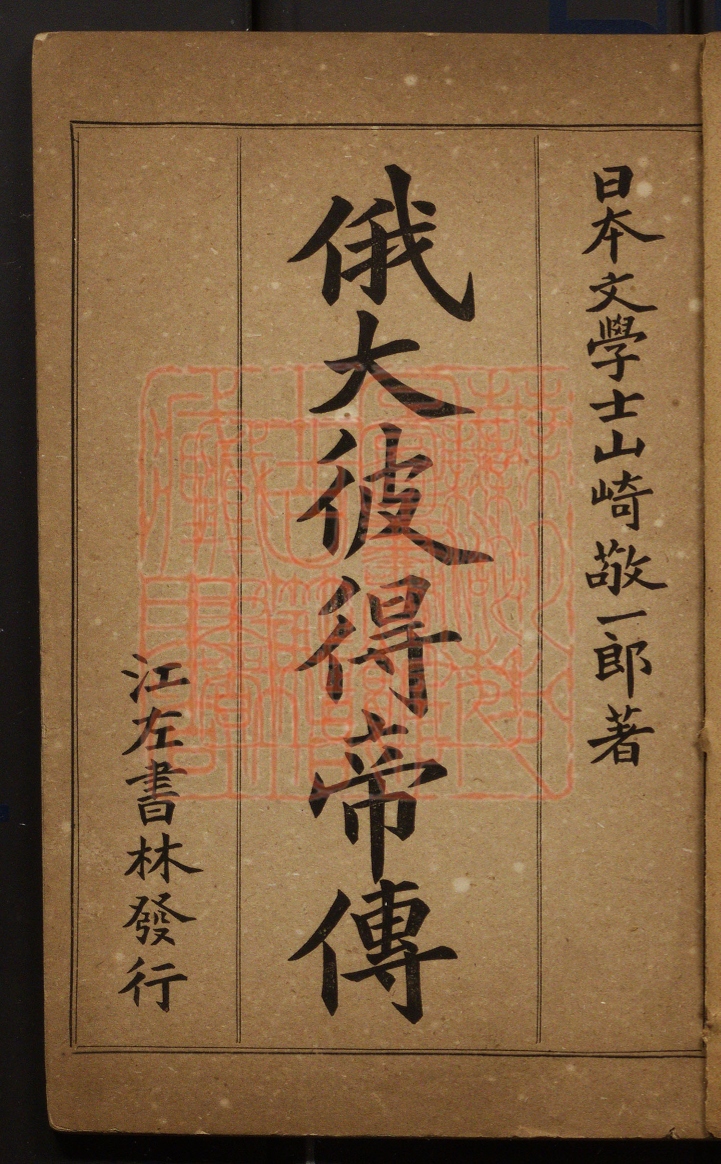 日本文學士山崎敬一郎著
俄大彼得帝傳
江左書林發行